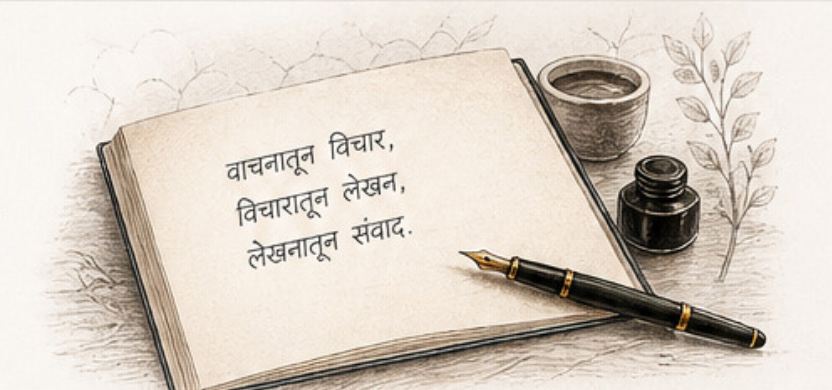 वाचनातून विचार,
विचारातून लेखन,
लेखनातून संवाद.